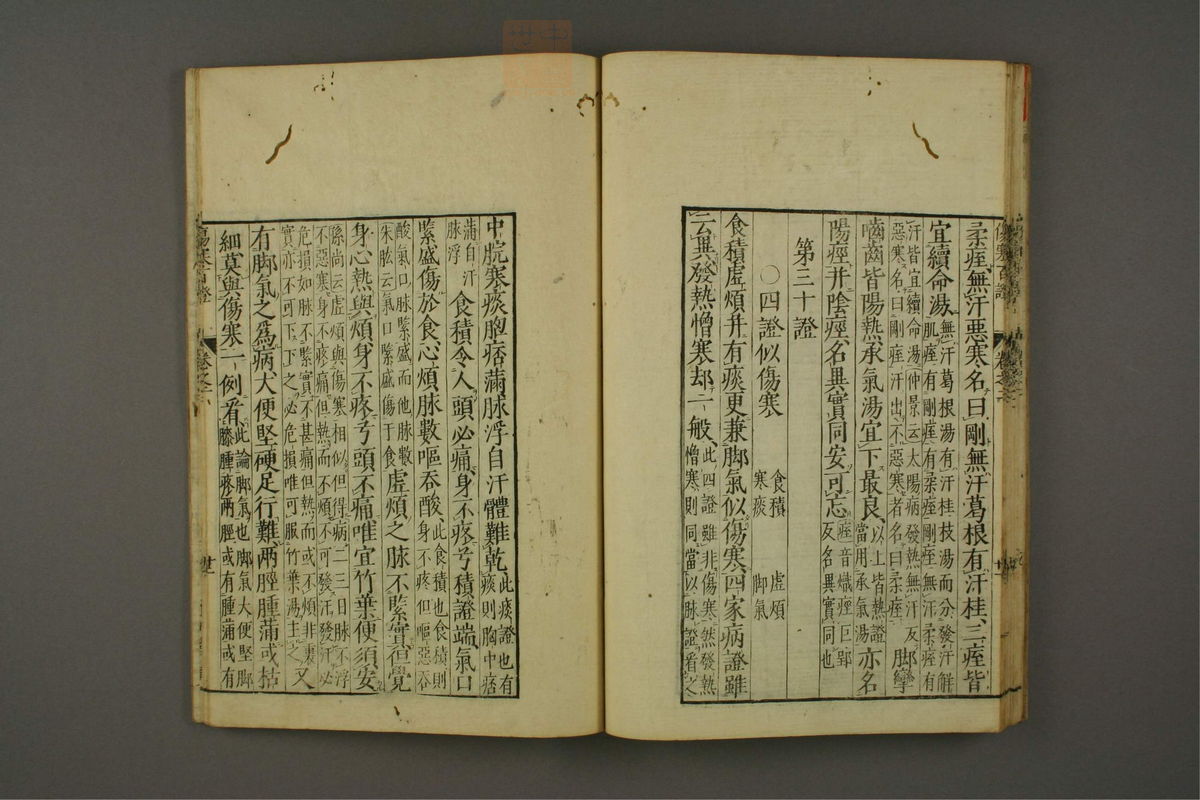 柔痓、無汗惡寒名曰剛無汗葛根有汗桂、二痓皆
宜續命湯無汗葛根湯有汗桂枝湯而分發汗解
肌痓有剛痓有柔痓剛痓無汗柔痓有
汗皆宜續命湯仲景云太陽病發熱無汗反
惡寒名曰剛痓汗出不惡寒者名曰柔痓脚攣
嚙齒皆陽熱承氣湯宜下最良以上皆熱證
當用承氣湯亦名
陽痙并陰痙名異實同安可忘痓音熾痙巨郢
反名異實同也
第三十證
〇四證似傷寒
食積 虛煩
寒痰 脚氣
食積虛煩并有痰更兼脚氣似傷寒四家病證雖
云異發熱憎寒却一般此四證雖非傷寒然發熱
憎寒則同當以脉證看之
中脘寒痰胸痞滿脉浮自汗體難乾此痰證也有
痰則胸中痞
滿自汗
脉浮食積令人頭必痛身不疼兮積證端氣口
緊盛傷於食心煩脉數嘔吞酸此食積也食積則
身不疼但嘔惡吞
酸氣口脉緊盛而他脉數
朱肱云氣口緊盛傷于食虛煩之脉不緊實但覺
身心熱與煩身不疼兮頭不痛唯宜竹葉便須安
孫尚云虛煩與傷寒相似但得病二三日脉不浮
不惡寒身不疼痛但熱而不煩不可發汗發汗必
危損如脉不緊實不甚痛但熱而或不煩非裏
實亦不可下下之必危損唯可服竹葉湯主之又
有脚氣之爲病大便堅硬足行難兩脛腫滿或枯
細莫與傷寒一例看此論脚氣也脚氣大便堅脚
膝腫疼兩脛或有腫滿或有
傷寒百證
卷之二